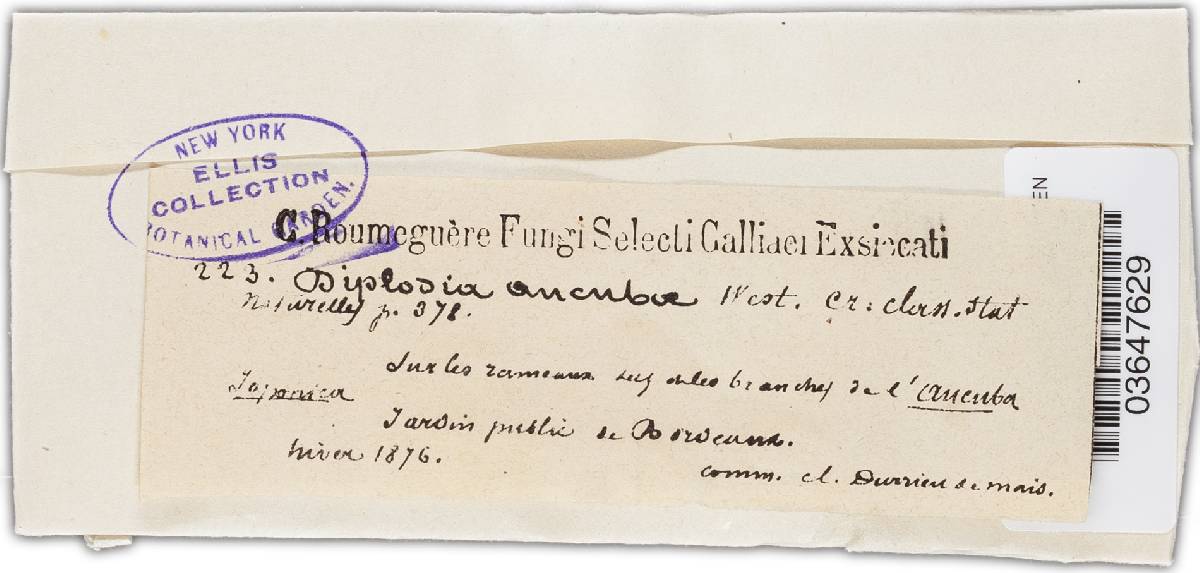 NEW YORK
ELLIS
COLLECTION
BOTANICAL GARDEN.
C. Roumeguère Fungi Selecti Galliaei Exsiccati
223. Diplodia aucubæ West. Cr: class. Stat
Naturelles p. 378.
Sur les rameaux et les branches de l'aucuba
Japonica
Jardin public de Bordeaux.
hiver 1876.
comm. cl. Durrieu de mais.
EN
03647629